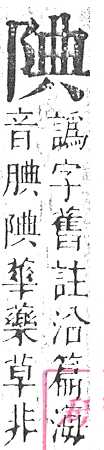 譌字舊註沿篇海
音腆蓽藥草非